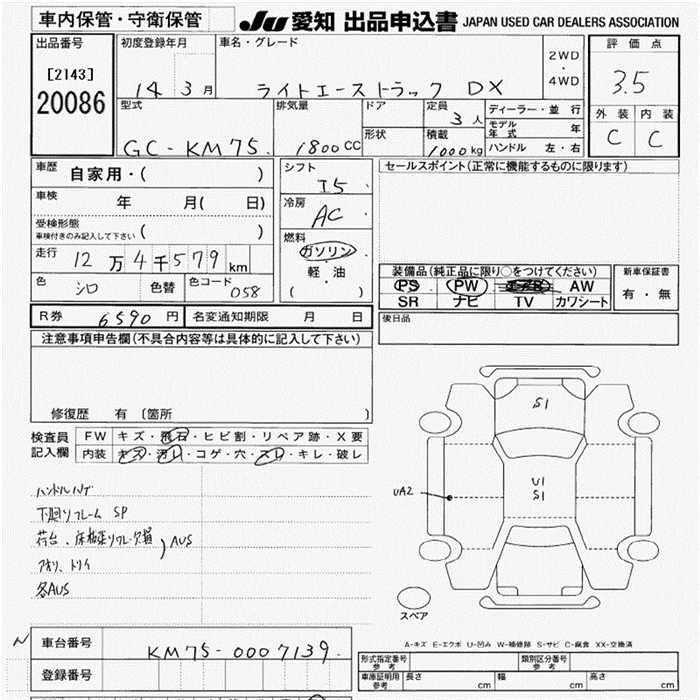 車内保管・守衛保管
JU 愛知 出品申込書 JAPAN USED CAR DEALERS ASSOCIATION
出品番号
[2143]
20086
初度登録年月
14 3 月
車名・グレード
ライトエーストラック DX
2WD
・
4WD
評価点
3.5
外装 内装
C C
型式
GC-KM75.
排気量
1800 CC
ドア
形状
定員
3 人
積載
1000 kg
ディーラー・並 行
モデル年式 年
ハンドル 左・右
車歴
自家用・( )
車検
年 月( 日)
受検形態
車検付きのみ記入して下さい ( )
走行
12 万 4 千 579 km
色
シロ
色替
色コード
058
シフト
I5
冷房
AC
燃料
ガソリン
・
軽・油
( )
セールスポイント(正常に機能するものに限ります)
装備品(純正品に限り○をつけてください)
PS PW AW
SR ナビ TV カワシート
新車保証書
有・無
R券 6590 円
名変通知期限 月 日
後日品
注意事項申告欄(不具合内容等は具体的に記入して下さい)
修復歴 有 [箇所 ]
検査員
記入欄
FW キズ・飛石・ヒビ割・リペア跡・X要
内装 キズ・汚レ・コゲ・穴・スレ・キレ・破レ
ハンドルハゲ
下廻リフレーム SP
AUS
アオリ、トリイ
各AUS
S1
U1
S1
UA2
スペア
A-キズ E-エクボ U-凹み W-補修跡 S-サビ C-腐食 XX-交換済
車台番号
KM75-0007139.
登録番号
形式指定番号
参考
類別区分番号
参考
車庫証明用
参考
長さ cm 幅 cm 高さ cm